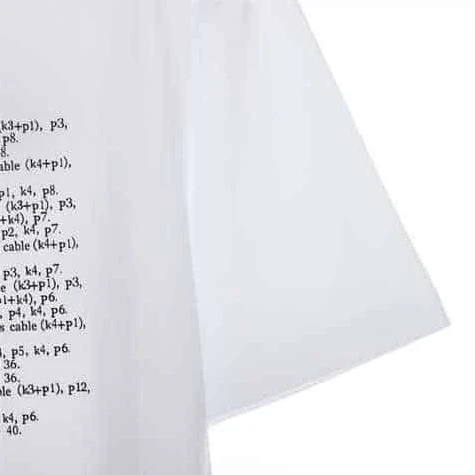 (k3+p1), p3,
p8.
8.
able (k4+p1),
p1, k4, p8.
(k3+p1), p3,
+k4), p7.
p2, k4, p7.
cable (k4+p1),
p3, k4, p7.
e (k3+p1), p3,
p1+k4), p6.
, p4, k4, p6.
s cable (k4+p1),
, p5, k4, p6.
36.
36.
ble (k3+p1), p12,
k4, p6.
40.